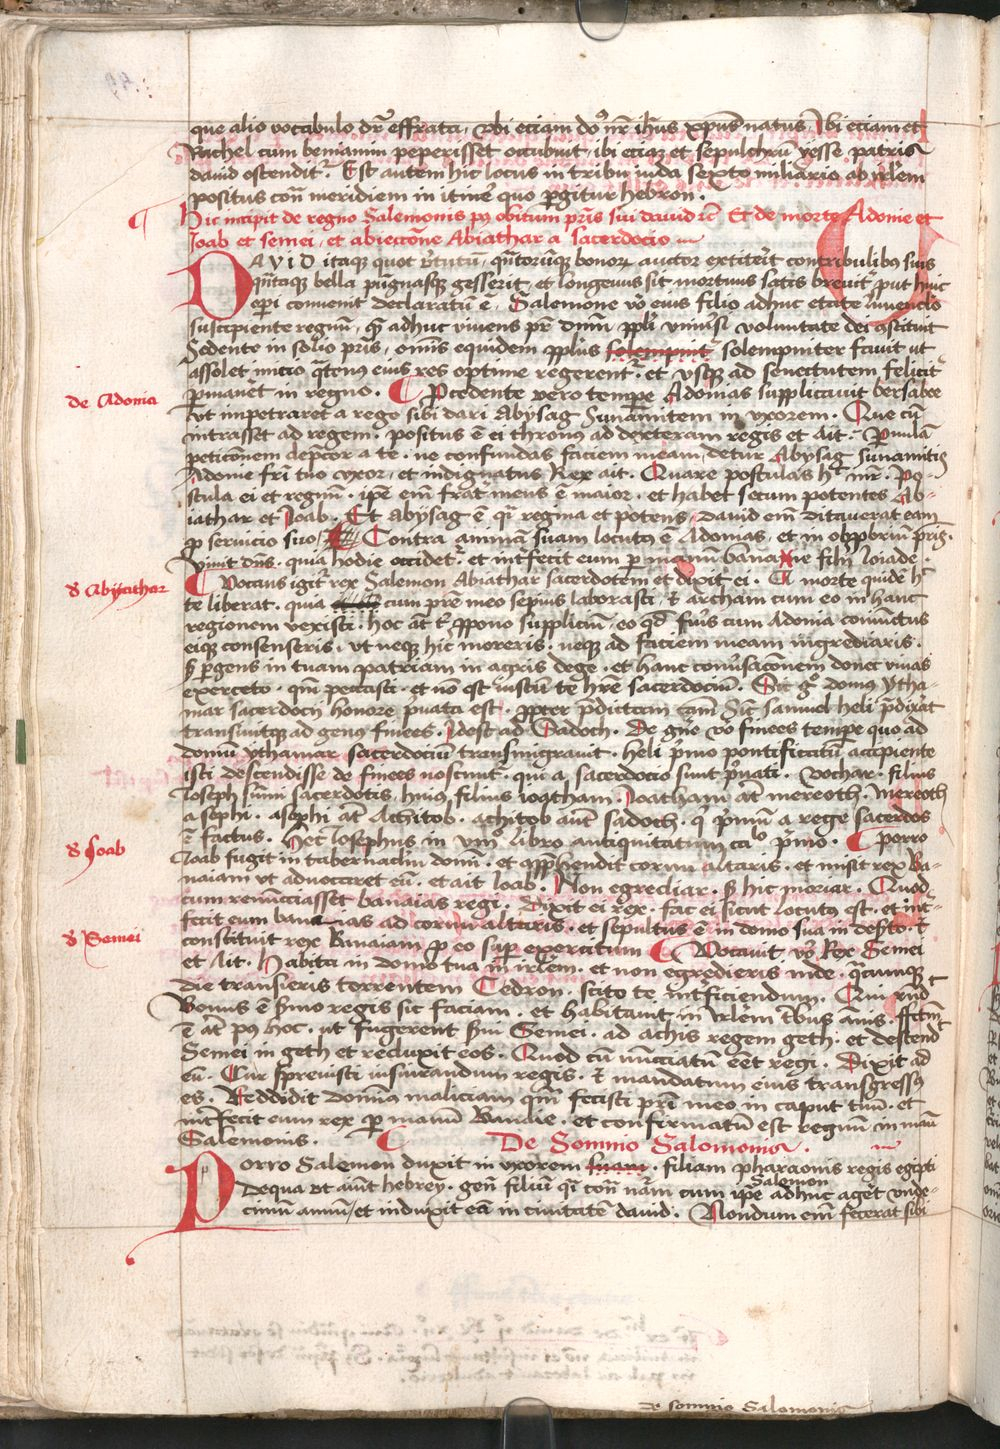 que alio vocabulo dr̄ effrata, vbi eciam do⁹ nr̄ ih̄us xp̄us natus. Ibi eciam et
Rachel cum beniamin peperisset occubuit, ibi eciam et sepulchrū yesse patris
dauid ostendit᷑. Est autem hic locus in tribu iuda sexto miliario ab irl̄em
positus cōn meridiem in itine᷑ quo ꝑgitur hebron.
Hic incipit de regno Salemonis pꝰ obitum pris sui dauid rē Et de morte Adonie et
Joab et semei, et abieccōne Abiathar a sacerdocio
DAVID itaque quot v̄tutū, quātorūque bonoꝝ auctor extiterit contribulibus suis
quātaque bella pugnasque gesserit, et longeuus sit mortuus satis breuit᷑ put huic
oꝑi conuenit declaratū ē. Salemone v̊o eius filio adhuc etate iuuenclo
suscipiente regnū, que adhuc viuens pr̄ dnm̄ ppl̄i vniūsi voluntate dei 9stituit
Sedente in solio pris, omīs equidem ppl̄us solempniter fauit ut
assolet inicio quatenus eius res optime regerent᷑. et vsque ad senectutem felicit᷑
ꝑmanēt in regno. Pcedente vero tempe Adonias supplicauit bersabee
de Adonia
vt impetraret a rege sibi dari Abysag Sunamitem in vxorem. Que cū
intrasset ad regem. positus ē ei thronus ad dexteram regis et Ait. Paruulā
peticōnem dep̄cor a te. ne confundas faciem meam, detur Abysag sunamitis
Adonie fr̄i tuo vxor, et indignatus Rex ait. Quare postulas h̄ mr̄. Po-
stula ei et regnū. ip̄e em̄ frat᷑ meus ē maior. et habet secum potentes Ab-
iathar et Joab. Et Abysag ē que regina et potens, dauid em̄ ditauerat eam
ꝓ seruicio suo. Contra animā suam locutꝰ ē Adonias, et in obpbrium pris.
viuit dn̄s. quia hodie occidet᷑. et int᷑fecit eum ꝑ manū bananie filii Joiade
de Abyathar
Vocans igit᷑ rex Salemon Abiathar sacerdotem et dixit ei. A morte quidē h̄
te liberat. quia cum pr̄e meo sepius laborasti, et archam cum eo in hanc
regionem vexisti. hoc at̄ t᷑ ꝓpono suppliciū, eo qd̄ fuis cum Adonia coniūctus
eique consenseris. vt neque hic moreris. neque ad faciem meam ingrediaris.
sꝫ ꝑgens in tuam patriam in agris dege. et hanc conūsacōnem donec viuas
exerceto. qm̄ peccasti. et nō est iustū te hr̄e sacerdociū. Sic gͦ domus ytha-
mar sacerdocii honore puata est. ꝓpter pdictam cām Sic samuel heli pdixͣt
transiuitque ad genus finees. Idest ad Sadoch. De gn̄e vͦo finees tempe quo ad
domū ythamar sacerdociū transmigrauit. heli pmo pontificatū accipiente
isti descendisse de finees noscunt. qui a sacerdocio sunt puati. Vochar. filius
Joseph sūmi sacerdotis, huius filius ioatham. Joatham at̄ mereoth. Mereoth
asephi. asephi at̄ Achitob. achitob aūt sadoch. qi pmū a rege sacerdos
ē factus. Hec Josephus in viiiͦ libro antiquitatum caͦ pmo. Porro
de Joab
Joab fugit in tabernaclm̄ domī. et app̄hendit cornu altaris. et misit rex Ba-
naiam vt aduocaret eū. et ait Joab. Non egrediar. sꝫ hic moriar. Quod
cum renūciasset banaias regi. Dixit ei rex. fac ei sicut locutꝰ est. et int᷑-
fecit eum banaias ad cornu altaris. et sepultus ē in domo sua in deſto. et
de Semei
constituit rex Banaiam ꝓ eo suꝑ exercitum Vocauit vͦo Rex Semei
et Ait. Habita in domo tua in irl̄em. et non egredieris inde. quacumque
die transieris torrentem Cedron. scito te int᷑ficiendum. Qui rn̄d
Bonus ē s̄mo regis sic faciam. et habitauit in irl̄em tribus ānis. ffactm̄
ē at̄ pꝰ hoc. ut fugerent s̄ui Semei. ad achis regem geth. et descend
Semei in geth et reduxit eos. Quod cū nūcciatū eēt regi. Dixit ad
eū. Cur spreuisti iusiurandum regis. et mandatum eius transgressꝰ
es. Reddidit dominꝰ maliciam qm̄ fecisti pr̄i meo in caput tuū. et
int᷑fecit eum rex ꝑ manū Banaie. et confirmatū est regnū in manu
Salemonis. De Sompnio Salomonis.
Porro Salemon duxit in vxorem filiam pharaonis regis egipti
Salemon
Dequa vt aiūt hebrey. genuit filiū que cōn nām cum ip̄e adhuc aget vnde-
cimū annū, et induxit eā in ciuitatē dauid. Nondum em̄ fecerat sibi
de somnio Salomonis